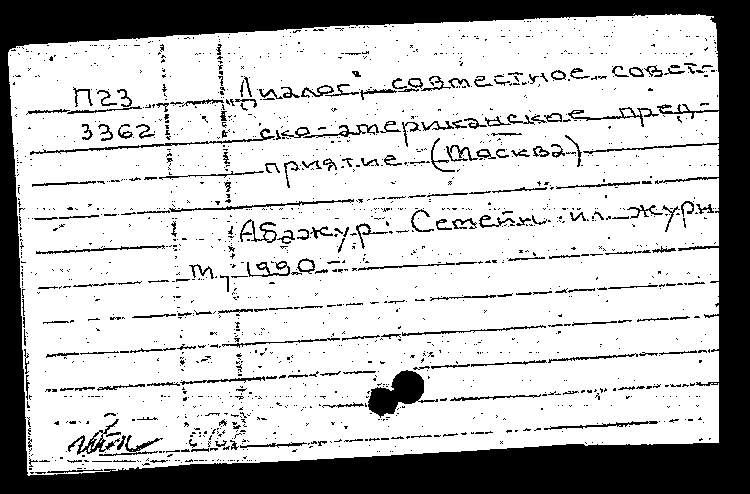 П23 "Диалог", совместное совет-
3362 ско-американское пред-
приятие (Москва)
Абажур: Семейн. ил. журн.
М., 1990 -